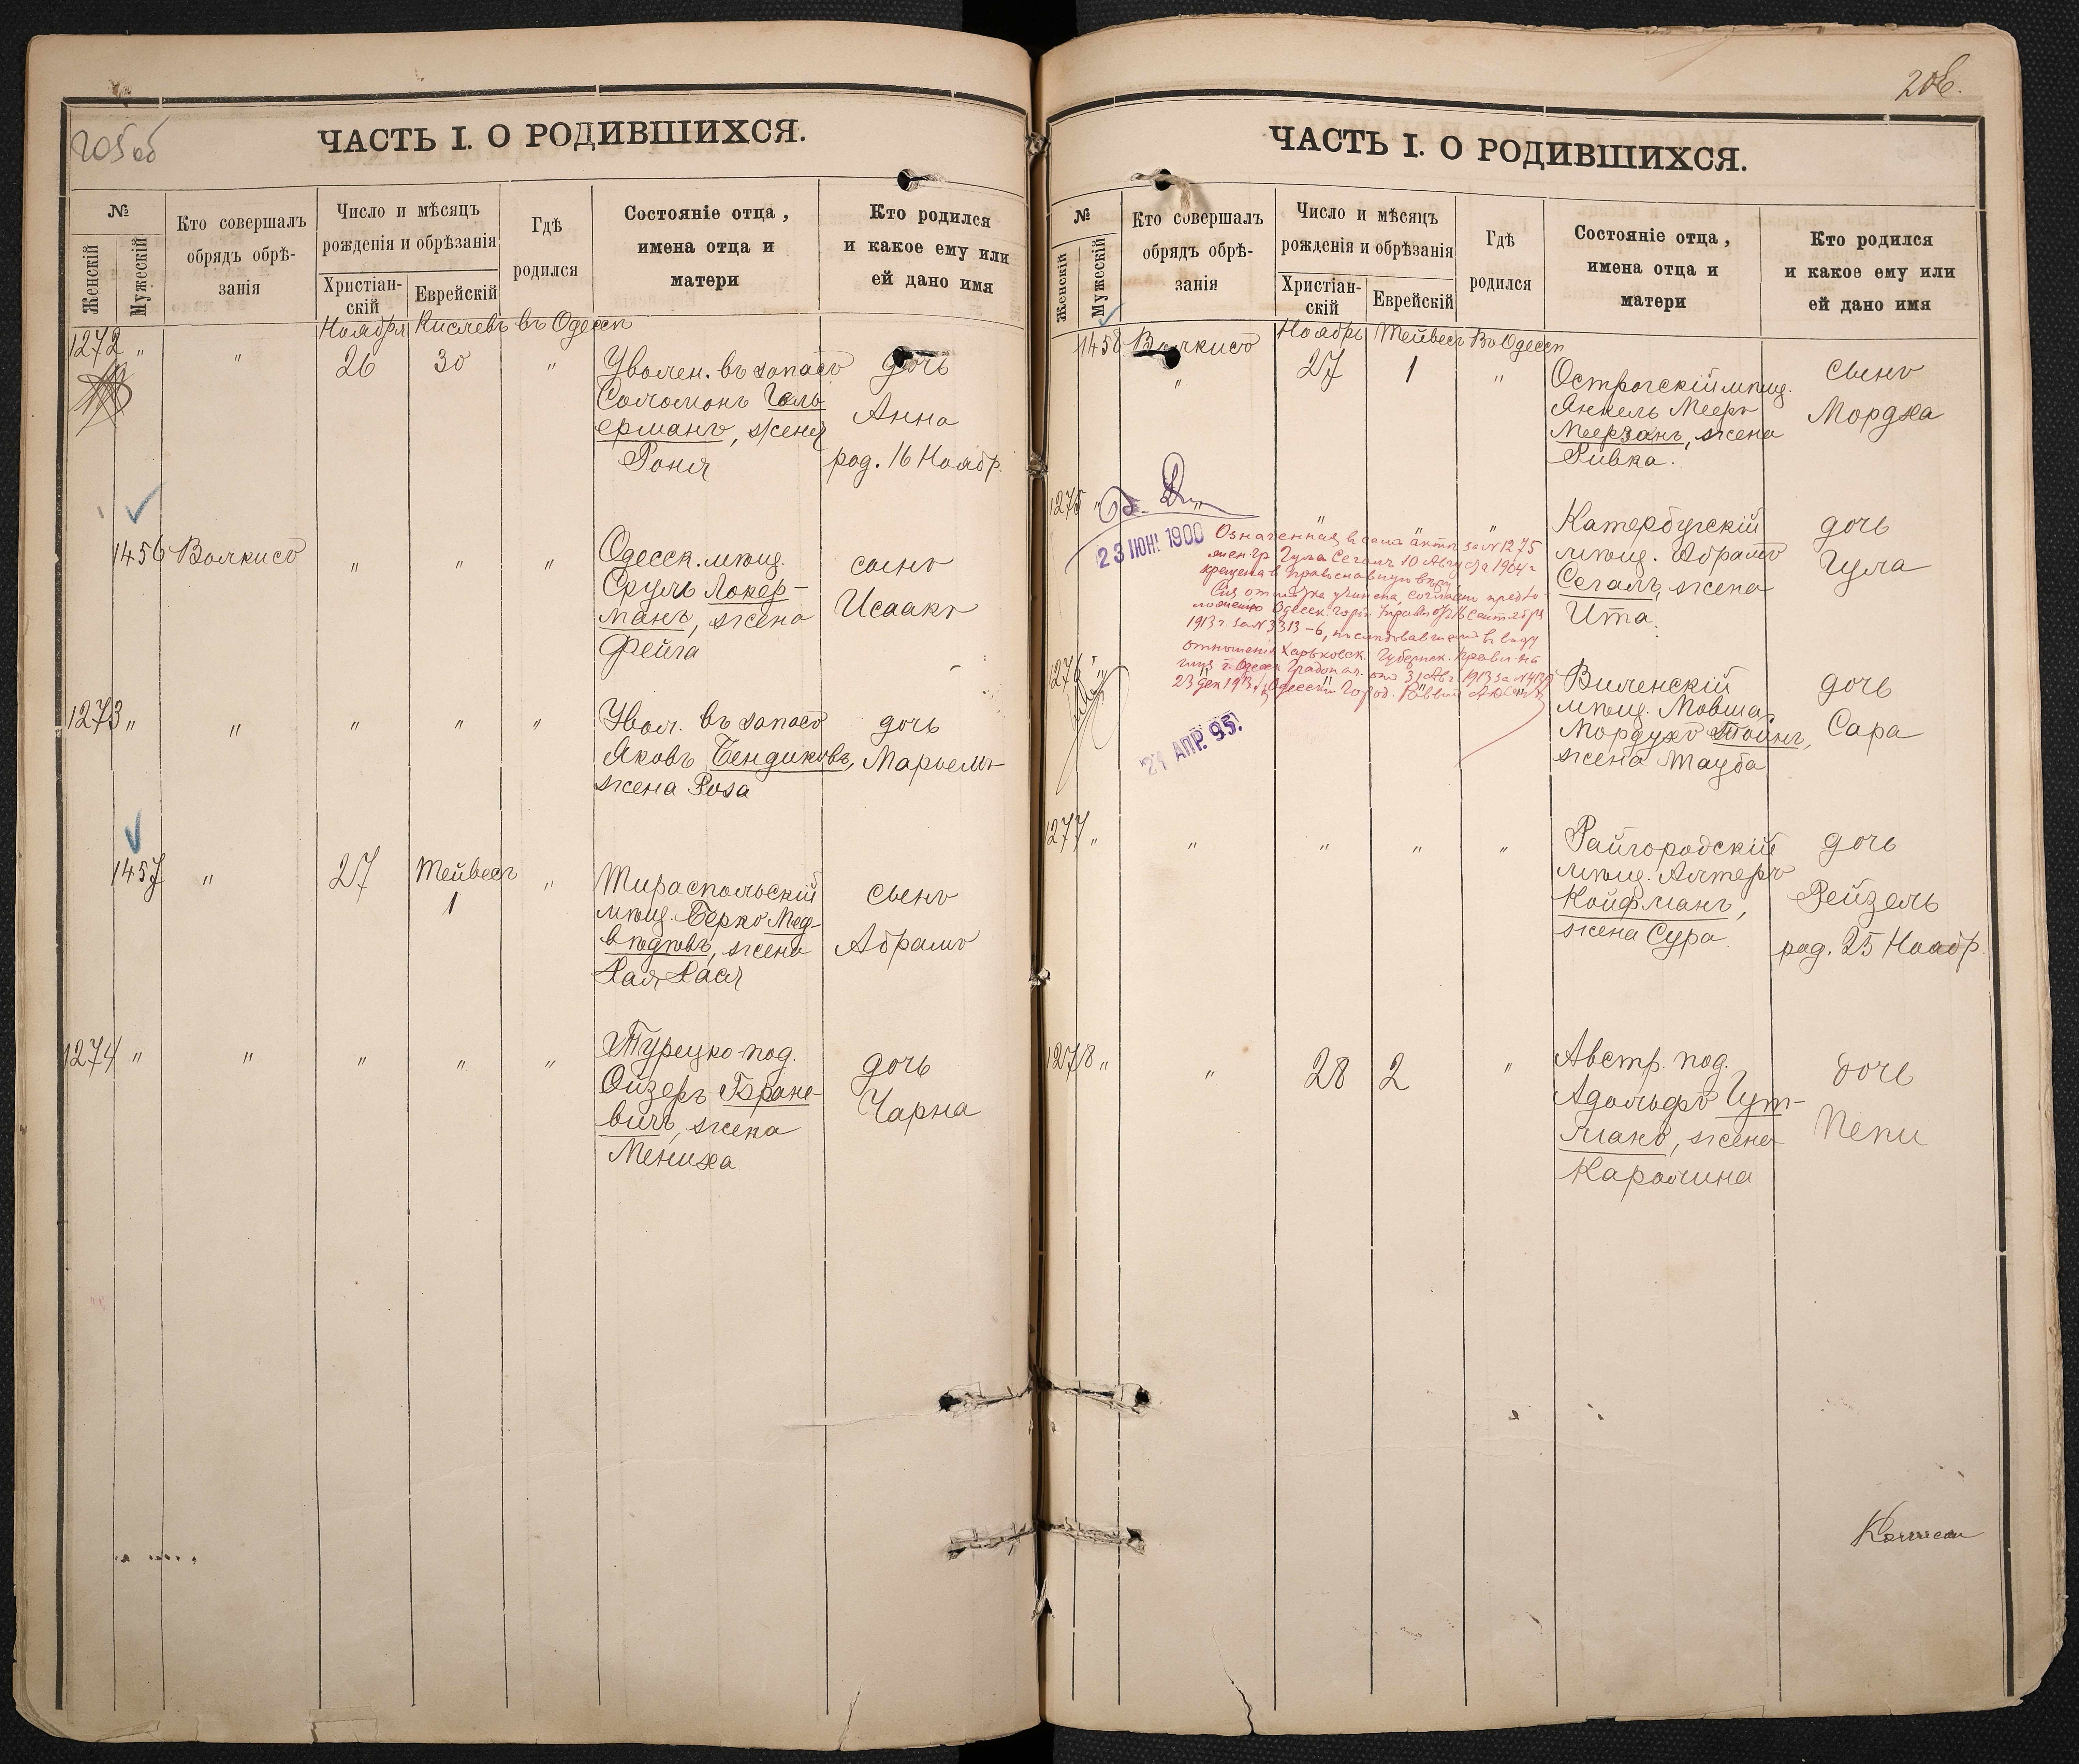 205об
ЧАСТЬ I. О РОДИВШИХСЯ.
№
Женскій
Мужескій
Кто совершалъ
обрядъ обрѣ-
занія
Число и мѣсяцъ
рожденія и обрѣзанія
Христіан-
скій
Еврейскій
Гдѣ
родился
Состояніе отца,
имена отца и
матери
Кто родился
и какое ему или
ей дано имя
Ноября Кислевъ въ Одессѣ
1272 " " 26 30 "
Уволен. въ запасъ
Соломонъ Гель
ерманъ, жена
Роня
дочь
Анна
род. 16 Ноябр.
1456 Волкисъ " " "
Одесск. мѣщ.
Сруль Локер-
манъ, жена
Фейга
сынъ
Исаакъ
1273 " " " " "
Увол. въ запасъ
Яковъ Бендиковъ,
жена Роза
дочь
Марьемъ
1457 " 27 Тейвесъ
1 "
Тираспольскій
мѣщ. Берко Мед-
вѣдевъ, жена
Хая Хася
сынъ
Абрамъ
1274 " " " " "
Турецко-под.
Ойзеръ Бране-
вичъ, жена
Мениха
дочь
Чарна
206.
ЧАСТЬ I. О РОДИВШИХСЯ.
№
Женскій
Мужескій
Кто совершалъ
обрядъ обрѣ-
занія
Число и мѣсяцъ
рожденія и обрѣзанія
Христіан-
скій
Еврейскій
Гдѣ
родился
Состояніе отца,
имена отца и
матери
Кто родился
и какое ему или
ей дано имя
1458 Волкисъ Ноябрь Тейвесъ Въ Одессѣ
" 27 1 "
Острогскій мѣщ.
Янкель Мееръ
Меерзонъ, жена
Ривка.
сынъ
Мордха
1275 " " " "
23 ІЮН 1900
Означенная въ семъ актѣ за № 1275
Гула Сегалъ 10 Августа 1904 г
крещена в православную вѣру
Сія отмѣтка учинена, согласно предло-
женію Одесск. Город. Управы отъ 16 Сентября
1913 г. за № 3313-6, послѣдовавшему въ виду
отношенія Харьковск. Губернск. Правл. на
имя г. Одесск. Градонач. отъ 31 Авг. 1913 за №
23 Дек 1913 г. Одесскій Город. Раввин
Катербургскій
мѣщ. Абрамъ
Сегалъ, жена
Ита.
дочь
Гула
1276 "
24 АПР. 95.
Виленскій
мѣщ. Мовша
Мордухъ
жена Тауба
дочь
Сара
1277 " " " " "
Райгородскій
мѣщ. Алтеръ
Койфманъ,
жена Сура
дочь
Рейзель
род. 25 Ноябр.
1278 " " 28 2 "
Австр. под.
Адольфъ Гут-
манъ, жена
Каролина
дочь
Пепи